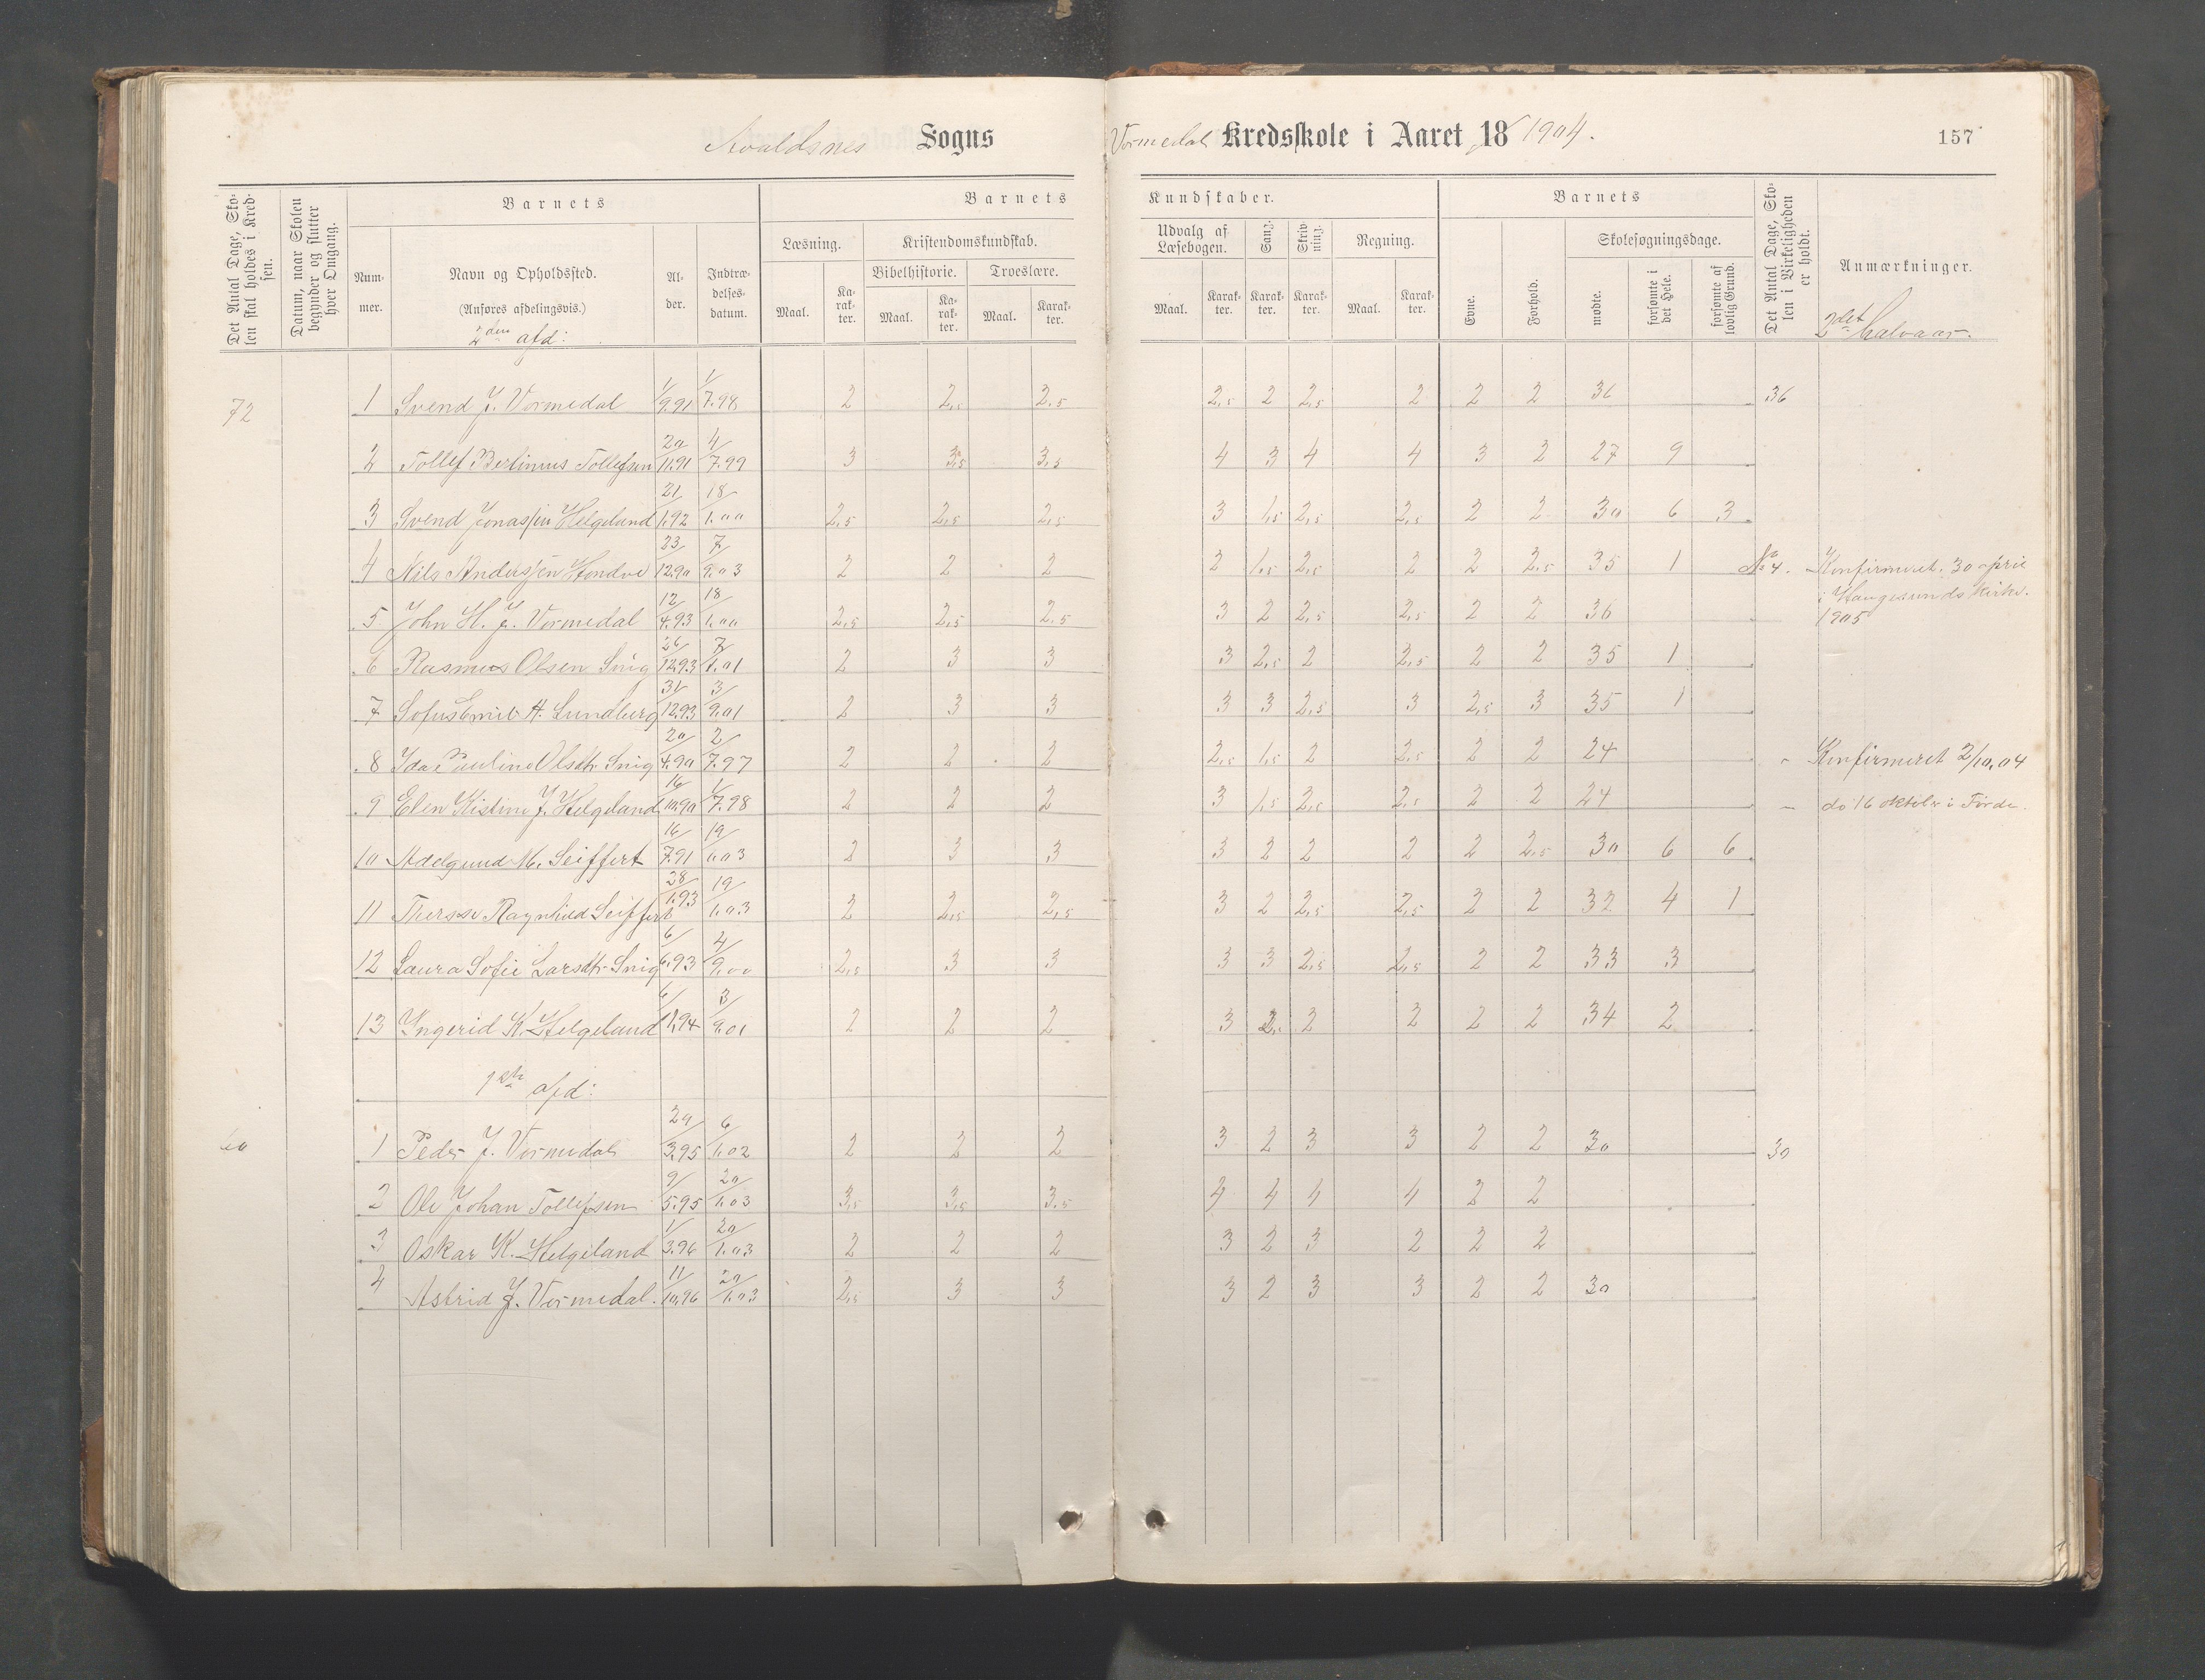 Avaldsnes Sogns Vormedal Kredsskole i Aaret 18 1904. 157
Det Antal Dage, Skolen skal holdes i Kredsen.
Datum, naar Skolen begynder og slutter hver Omgang.
Barnets
Barnets Kundskaber.
Barnets
Det Antal Dage, Skolen i Virkeligheden er holdt.
Anmærkninger.
Nummer.
Navn og Opholdssted.
(Anføres afdelingsvis.)
Alder.
Indtrædelsesdatum.
Læsning.
Kristendomskundskab.
Bibelhistorie. Troeslære.
Udvalg af Læsebogen.
Sang.
Skrivning.
Regning.
Evne.
Forhold.
Skolesøgningsdage.
Maal. Karakter. Maal. Karakter. Maal. Karakter. Maal. Karakter. Karakter. Karakter. Maal. Karakter.
mødte.
forsømte i det Hele.
forsømte af lovlig Grund.
2den afd: 2det halvaar.
72 1 Svend J. Vormedal 1/9.91 1/7.98 2 2,5 2,5 2,5 2 2,5 2 2 2 36 36
2 Tollef Berlinus Tollefsen 20/11.91 4/7.99 3 3,5 3,5 4 3 4 4 3 2 27 9
3 Svend Jonassen Helgeland 21/1.92 18/1.00 2,5 2,5 2,5 3 1,5 2,5 2,5 2 2 30 6 3
4 Nils Anderssen 23/12.90 7/9.03 2 2 2 2 1,5 2,5 2 2 2,5 35 1 No 4. Konfirmeret 30 april
i Haugesunds kirke.
1905
5 John H. J. Vormedal 12/4.93 18/1.00 2,5 2,5 2,5 3 2 2,5 2,5 2 2 36
6 Rasmus Olsen Snig 26/12.93 7/1.01 2 3 3 3 2,5 2 2,5 2 2 35 1
7 Sofus Emil A. Lundberg 31/12.93 3/9.01 2 3 3 3 3 2,5 3 2,5 3 35 1
8 Ida Pauline Olsdtr. Snig 20/4.90 2/7.97 2 2 2 2,5 1,5 2 2,5 2 2 24 " Konfirmeret 2/10.04
9 Elen Kistine J. Helgeland 16/10.90 1/7.98 2 2 2 3 1,5 2,5 2,5 2 2 24 – do 16 oktober i Førde.
10 Adelgund M. Seiffert 16/7.91 19/1.03 2 3 3 3 2 2 2 2 2,5 30 6 6
11 Therese Ragnhild Seiffert 28/1.93 19/1.03 2 2,5 2,5 3 2 2,5 2,5 2 2 32 4 1
12 Laura Sofie Larsdtr. Snig 6/6.93 4/9.00 2,5 3 3 3 3 2,5 2,5 2 2 33 3
13 Yngerid K. Helgeland 6/1.94 3/9.01 2 2 2 3 2 2 2 2 34 2
1ste afd:
60 1 Peder J. Vormedal 20/3.95 6/1.02 2 2 2 3 2 3 3 2 2 30 30
2 Ole Johan Tollefsen 9/5.95 20/1.03 3,5 3,5 3,5 4 4 4 4 2 2
3 Oskar K. Helgeland 1/3.96 20/1.03 2 2 2 3 2 3 2 2 2
4 Astrid J. Vormedal. 11/10.96 20/1.03 2,5 3 3 3 2 3 3 2 2 30